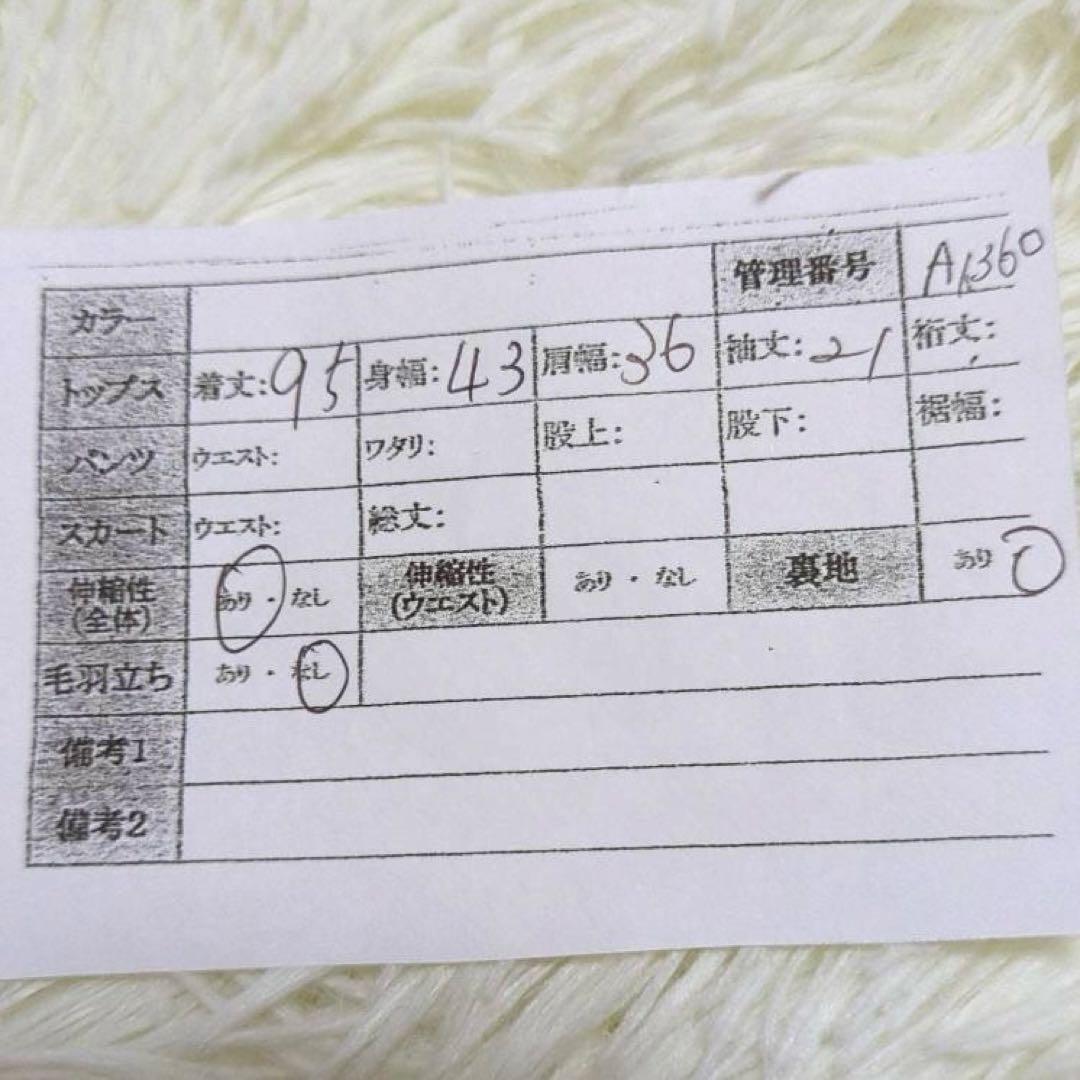 カラー 管理番号 A1360
トップス 着丈:95 身幅:43 肩幅:36 袖丈:21 裄丈:
パンツ ウエスト: ワタリ: 股上: 股下: 裾幅:
スカート ウエスト: 総丈:
伸縮性(全体) あり・なし 伸縮性(ウエスト) あり・なし 裏地 あり
毛羽立ち あり・なし
備考1
備考2